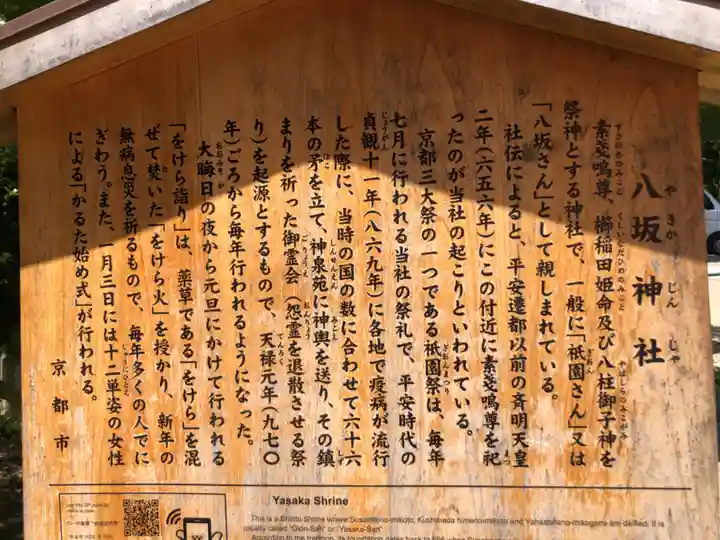 八坂神社
やさかじんじゃ
素戔嗚尊、櫛稲田姫命及び八柱御子神を
すさのをのみこと くしいなだひめのみこと やはしらのみこがみ
祭神とする神社で、一般に「祇園さん」又は
ぎおん
「八坂さん」として親しまれている。
社伝によると、平安遷都以前の斉明天皇
二年(六五六年)にこの付近に素戔嗚尊を祀
まつ
ったのが当社の起こりといわれている。
京都三大祭の一つである祇園祭は、毎年
ぎおんまつり
七月に行われる当社の祭礼で、平安時代の
貞観十一年(八六九年)に各地で疫病が流行
じょうがん
した際に、当時の国の数に合わせて六十六
本の矛を立て、神泉苑に神輿を送り、その鎮
ほこ しんせんえん みこし しず
まりを祈った御霊会(怨霊を退散させる祭
ごりょうえ おんりょう
り)を起源とするもので、天禄元年(九七〇
てんろく
年)ごろから毎年行われるようになった。
大晦日の夜から元旦にかけて行われる
おおみそか
「をけら詣り」は、薬草である「をけら」を混
まい
ぜて焚いた「をけら火」を授かり、新年の
た
無病息災を祈るもので、毎年多くの人でに
ぎわう。また、一月三日には十二単姿の女性
じゅうにひとえ
による「かるた始め式」が行われる。
京都市
Yasaka Shrine
This is a Shinto Shrine where Susanowo-mikoto, Kushiinada-himeno-mikoto and Yahashirano-mikogami are deified. It is
usually called "Gion-San" or "Yasaka-San"
According to the tradition, its foundation dates back to 656